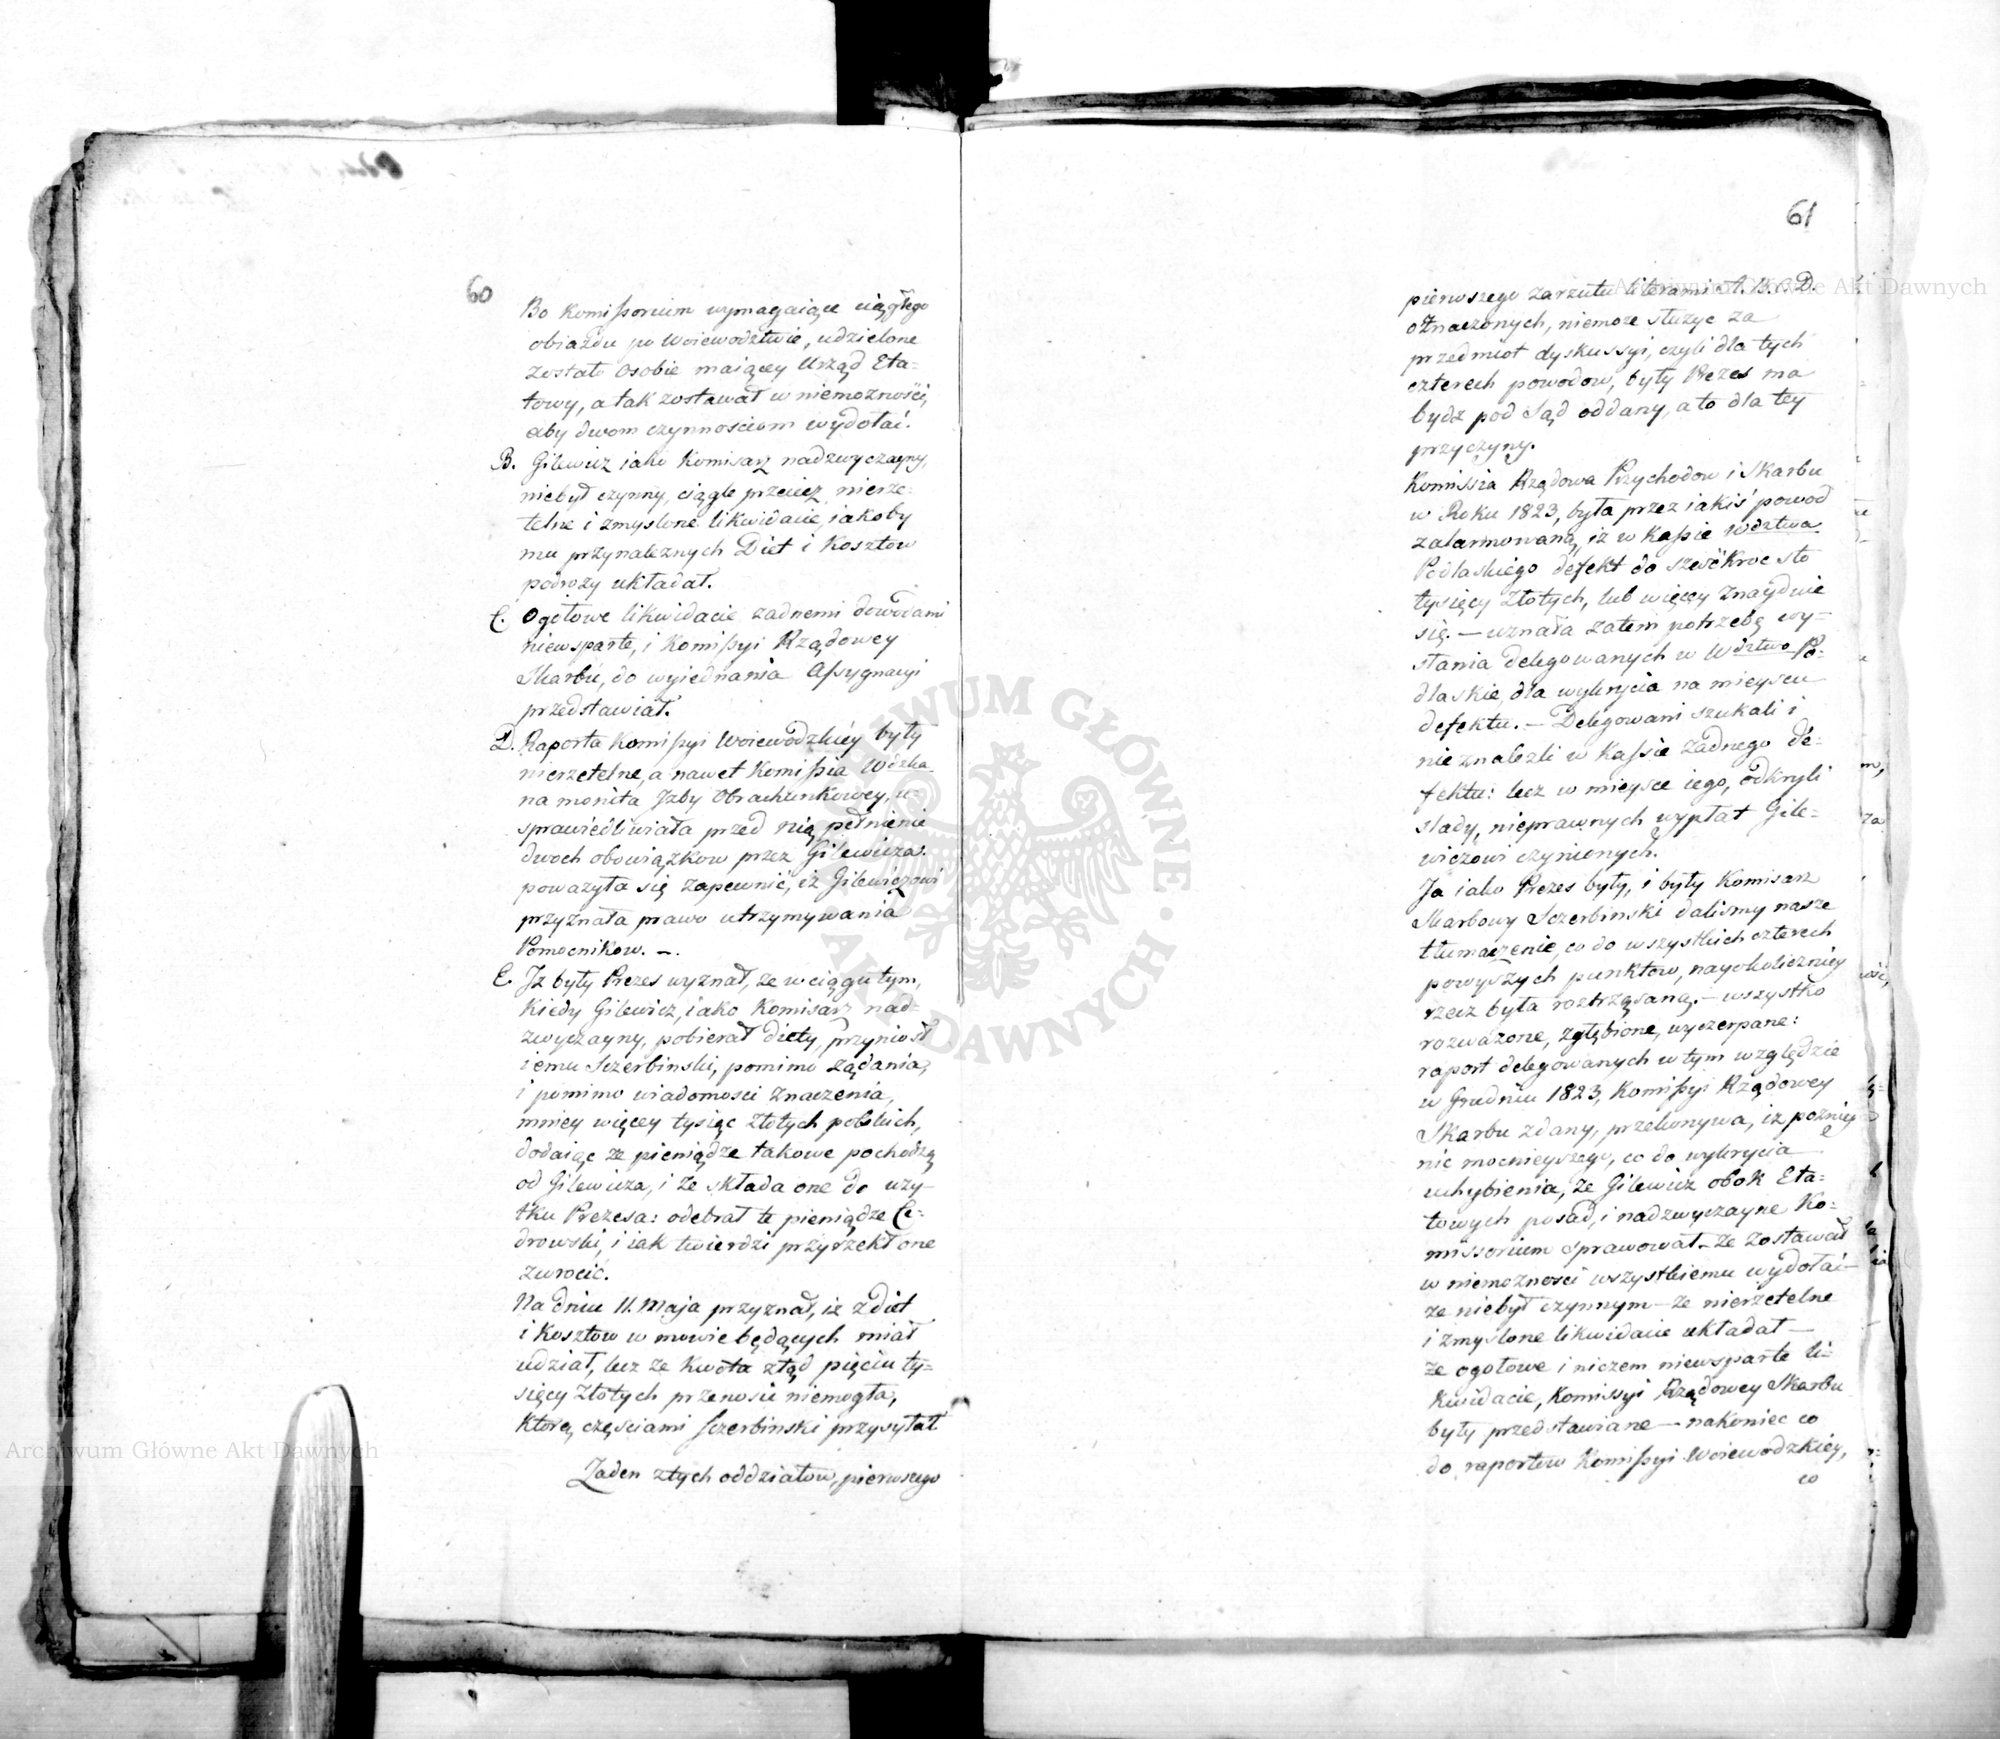 60
Bo Komißorium wymagaiące ciągłego
obiazdu po Woiewodztwie, udzielone
zostało osobie maiącey Urząd Eta=
towy, a tak zostawał w niemozności,
aby dwom czynnosciom wydołać.
B. Gilewicz iako Komisarz nadzwyczayny,
niebył czynny, ciągle przeciez nierze=
telne i zmyslone likwidacie, iakoby
mu przynaleznych Diet i Kosztow
podrozy układał.
C. Ogołowe likwidacie zadnemi dowodami
niewsparte, i Komißyi Rządowey
Skarbu, do wyiednania Aßygnacyi
przedstawiał.
D. Raporta Komißyi Woiewodzkiéy były
nierzetelne, a nawet Komißia Wdzka
na monita Izby Obrachunkowey, u=
sprawiedliwiała przed nią pełnienie
dwoch obowiązkow przez Gilewicza.
powazyła się zapewnić, iż Gilewiczowi
przyznała prawo utrzymywania
Pomocnikow. —.
E. Iż były Prezes wyznał, ze w ciągu tym,
kiedy Gilewicz, iako Komisarz nad=
zwyczayny, pobierał diety, przyniosł
iemu Sczerbinski, pomimo ządania,
i pomimo wiadomosci znaczenia,
mniey więcey tysiąc złotych polskich,
dodaiąc ze pieniądze takowe pochodzą
od Gilewicza, i ze składa one do uzy-
tku Prezesa: odebrał te pieniądze Ce=
drowski, i iak twierdzi przyrzekł one
zwrocić.
Na dniu 11. Maja przyznał, iz z diet
i Kosztow w mowie będących miał
udział, lecz ze Kwota ztąd pięciu ty=
sięcy Złotych przenosic niemogła,
którą częściami Sczerbinski przysyłał
Zaden z tych oddziałow, pierwszego
61
pierwszego zarzutu literami A. B. C. D.
oznaczonych, niemoze słuzyc za
przedmiot dyskussyi, czyli dla tych
czterech powodow, były Prezes ma
bydz pod Sąd oddany, a to dla tey
przyczyny.
Komissia Rządowa Przychodow i Skarbu
w Roku 1823, była przez iakiś powod
zalarmowaną, iz w Kaßie Wdztwa
Podlaskiego défekt do szesćkroc sto
tysięcy Złotych, lub więcey znayduie
się. — uznała zatem potrzebę wy-
słania delegowanych w Wdztwo Po=
dlaskie, dla wykrycia na mieyscu
defektu. — Delegowani szukali i
nie znalezli w Kaßie zadnego dé=
fektu: lecz w mieysce iego, odkryli
slady, nieprawnych wypłat Gile=
wiczowi czynionych.
Ja iako Prezes były, i były Komisarz
Skarbowy Sczerbinski dalismy nasze
tłumaczenie, co do wszystkich czterech
powyszych punktow, nayokoliczniey
rzecz była roztrząsaną. — wszystko
rozwazone, zgłębione, wyczerpane:
raport delegowanych w tym względzie
w Grudniu 1823, Komißyi Rządowey
Skarbu zdany, przekonywa, iz pozniey
nic mocnieyszego, co do wykrycia
uchybienia, że Gilewicz obok Eta=
towych posad, i nadzwyczayne Ko=
missorium sprawował — ze zostawał
w niemoznosci wszystkiemu wydołać —
ze niebył czynnym — ze nierzetelne
i zmyslone likwidacie układał —
że ogołowe i niczem niewsparte li=
kwidacie, Komissyi Rządowey Skarbu
były przedstawiane — nakoniec co
do raportow Komißyi Woiewodzkiey,
co